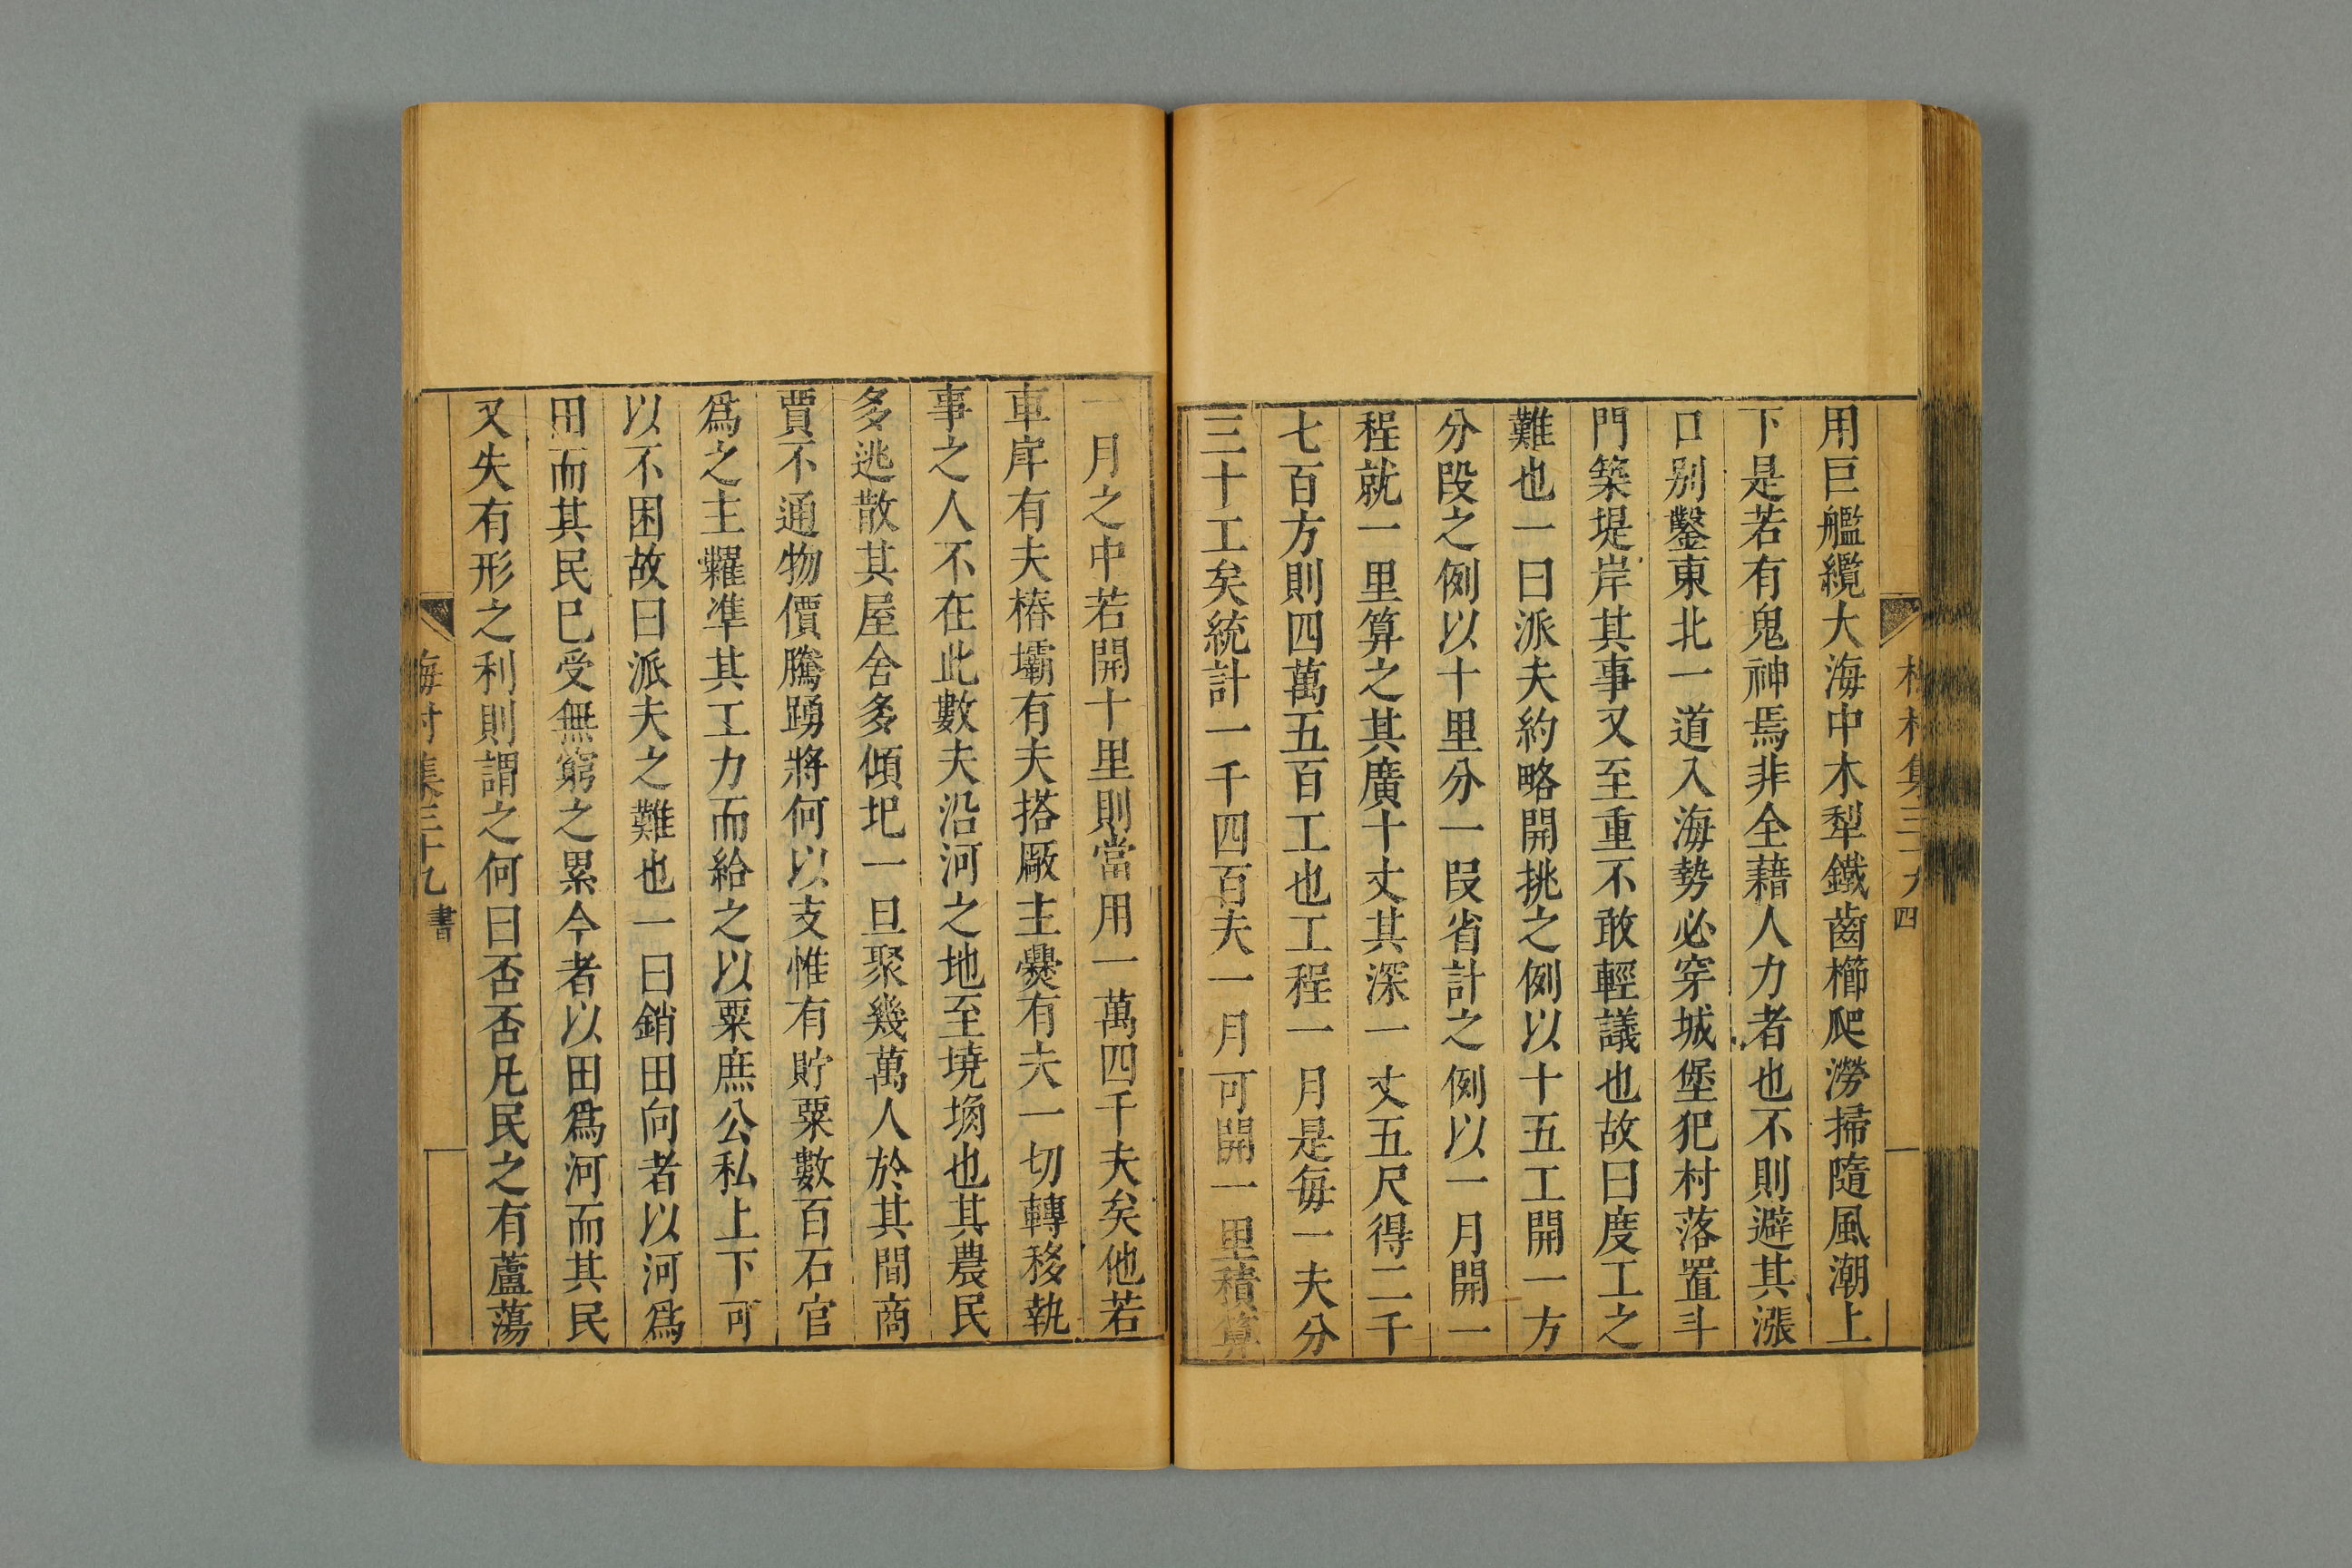 用巨艦纜大海中木犁鐵齒櫛爬澇掃隨風潮上
下是若有鬼神焉非全藉人力者也不則避其漲
口別鑿東北一道入海勢必穿城堡犯村落置斗
門築堤岸其事又至重不敢輕議也故曰度工之
難也一曰派夫約略開挑之例以十五工開一方
分段之例以十里分一段省計之例以一月開一
程就一里算之其廣十丈其深一丈五尺得二千
七百方則四萬五百工也工程一月是每一夫分
三十工矣統計一千四百夫一月可開一里積算
一月之中若開十里則當用一萬四千夫矣他若
車岸有夫樁壩有夫搭厰主爨有夫一切轉移執
事之人不在此數夫沿河之地至墝埆也其農民
多逃散其屋舍多傾圯一旦聚幾萬人於其間商
賈不通物價騰踴將何以支惟有貯粟數百石官
爲之主糶準其工力而給之以粟庶公私上下可
以不困故曰派夫之難也一曰銷田向者以河爲
田而其民已受無窮之累今者以田爲河而其民
又失有形之利則謂之何曰否否凡民之有蘆蕩
梅村集三十九 書